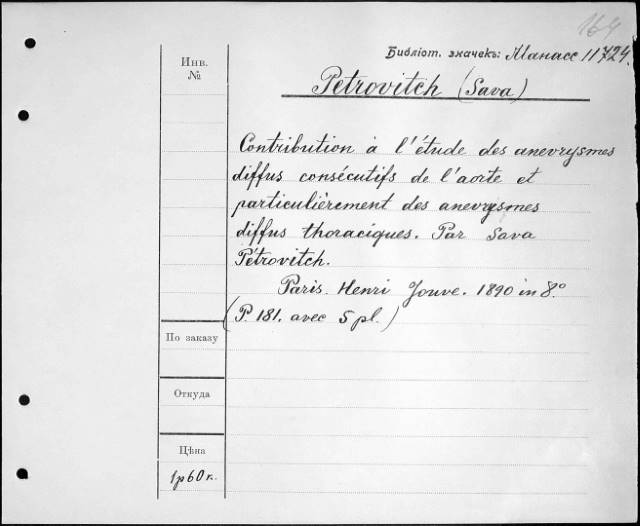 164
Библіот. значекъ: Манасс 11724.
Инв.
№
Petrovitch (Sava)
Contribution à l'étude des anevrysmes
diffus consécutifs de l'aorte et
particulièrement des anevrysmes
diffus thoraciques. Par Sava
Pétrovitch.
Paris. Henri Jouve. 1890 in 8.º
(P. 181. avec 5 pl.)
По заказу
Откуда
Цѣна
1 р 60 к.